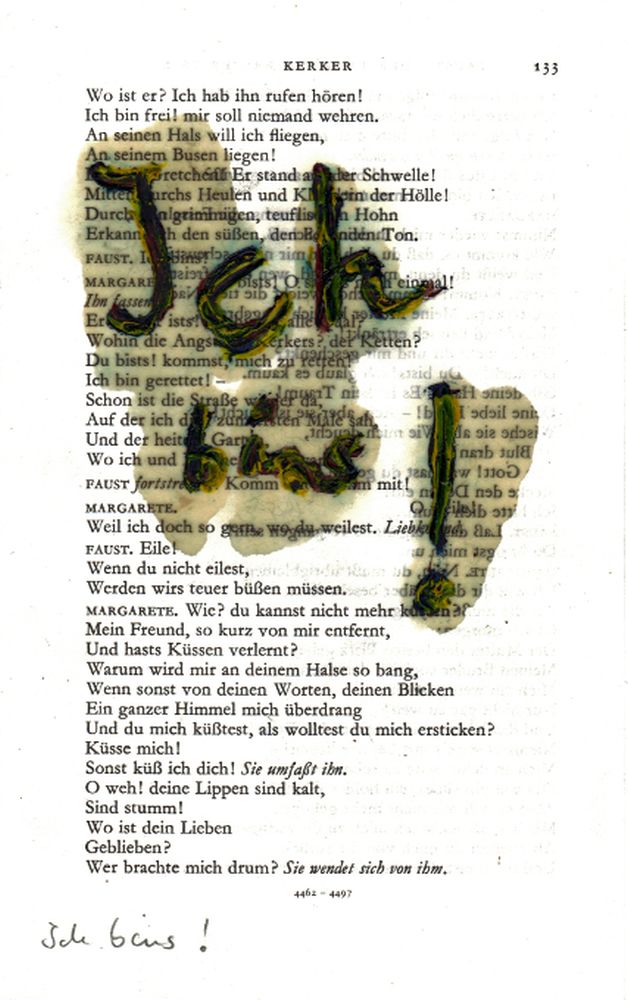 KERKER 133
Wo ist er? Ich hab ihn rufen hören!
Ich bin frei! mir soll niemand wehren.
An seinen Hals will ich fliegen,
An seinem Busen liegen!
Er stand auf der Schwelle!
Mitten durchs Heulen und der Hölle!
Durch den grimmigen, teuflischen Hohn
Erkannt ich den süßen, den Ton.
FAUST. Ich bins!
MARGARETE bists! O einmal!
Ihn fassend
Er ists!
Wohin die Angst Kerkers? der Ketten?
Du bists! kommst, mich zu retten!
Ich bin gerettet! –
Schon ist die Straße wieder da,
Auf der ich dich zum ersten Male sah,
Und der heitere Garten
Wo ich und
FAUST fortstrebend Komm mit!
MARGARETE.
Weil ich doch so gern, wo du weilest. Liebkosend.
FAUST. Eile!
Wenn du nicht eilest,
Werden wirs teuer büßen müssen.
MARGARETE. Wie? du kannst nicht mehr küssen?
Mein Freund, so kurz von mir entfernt,
Und hasts Küssen verlernt?
Warum wird mir an deinem Halse so bang,
Wenn sonst von deinen Worten, deinen Blicken
Ein ganzer Himmel mich überdrang
Und du mich küßtest, als wolltest du mich ersticken?
Küsse mich!
Sonst küß ich dich! Sie umfaßt ihn.
O weh! deine Lippen sind kalt,
Sind stumm!
Wo ist dein Lieben
Geblieben?
Wer brachte mich drum? Sie wendet sich von ihm.
4462 – 4497
Ich
bins !
Ich bins !